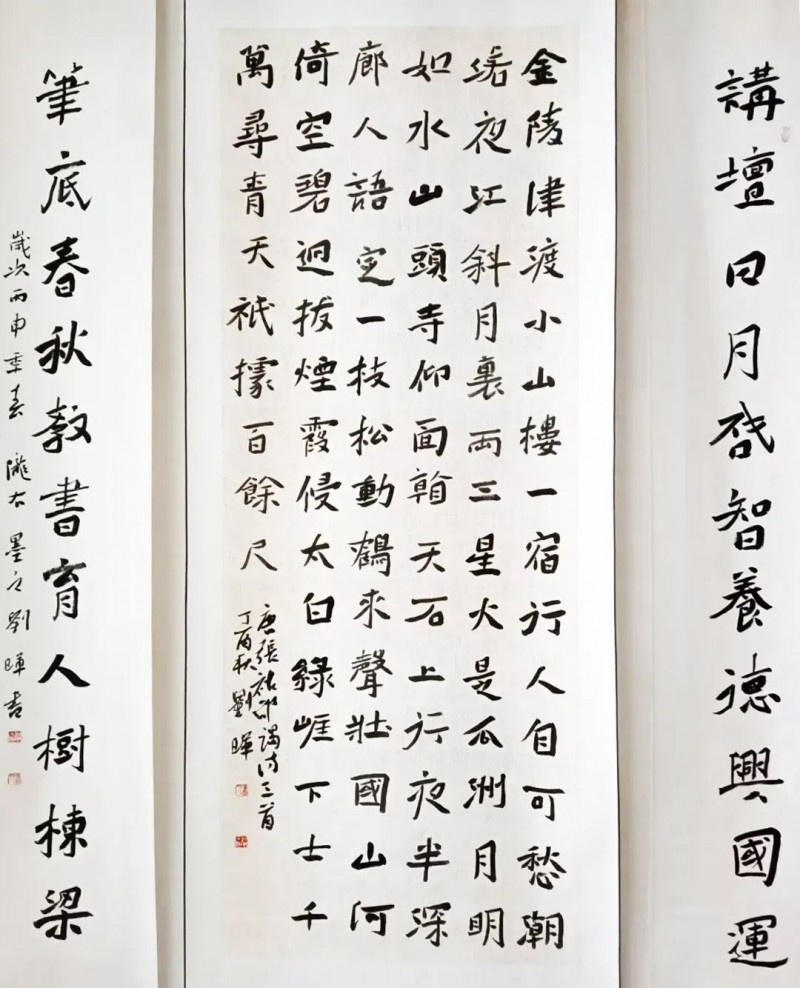 講壇日月啓智養德興國運
金陵津渡小山樓一宿行人自可愁潮
落夜江斜月裏兩三星火是瓜洲月明
如水山頭寺仰面看天石上行夜半深
廊人語定一枝松動鶴來聲壯國山河
倚空碧迥拔煙霞侵太白綠崖下士千
萬尋青天祇據百餘尺
唐張祜詩三首
丁酉秋劉暉
筆底春秋教書育人樹棟梁
歲次丙申季春 隴右墨劉暉書